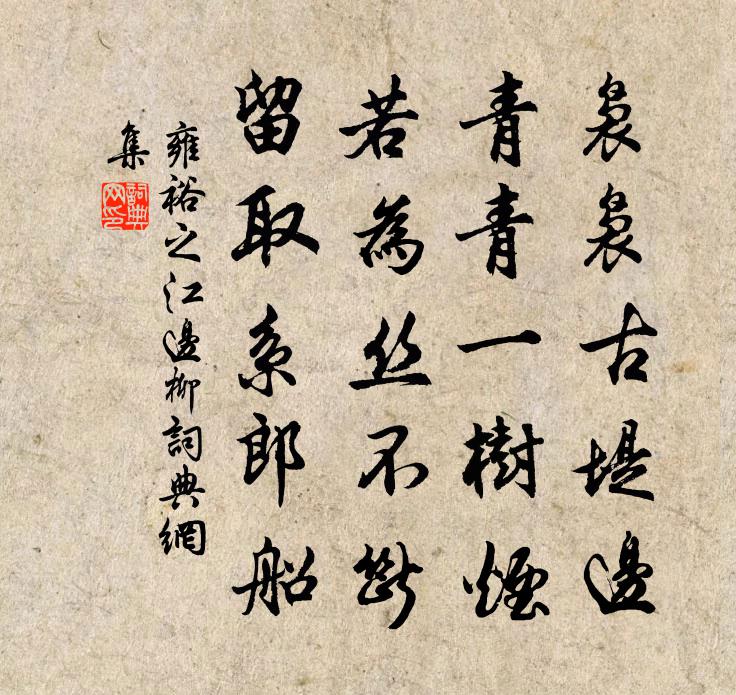 裊裊古堤邊
青青一樹煙
若為丝不斷
留取系郎船
雍裕之江邊柳詞典網
集
詞典
网印